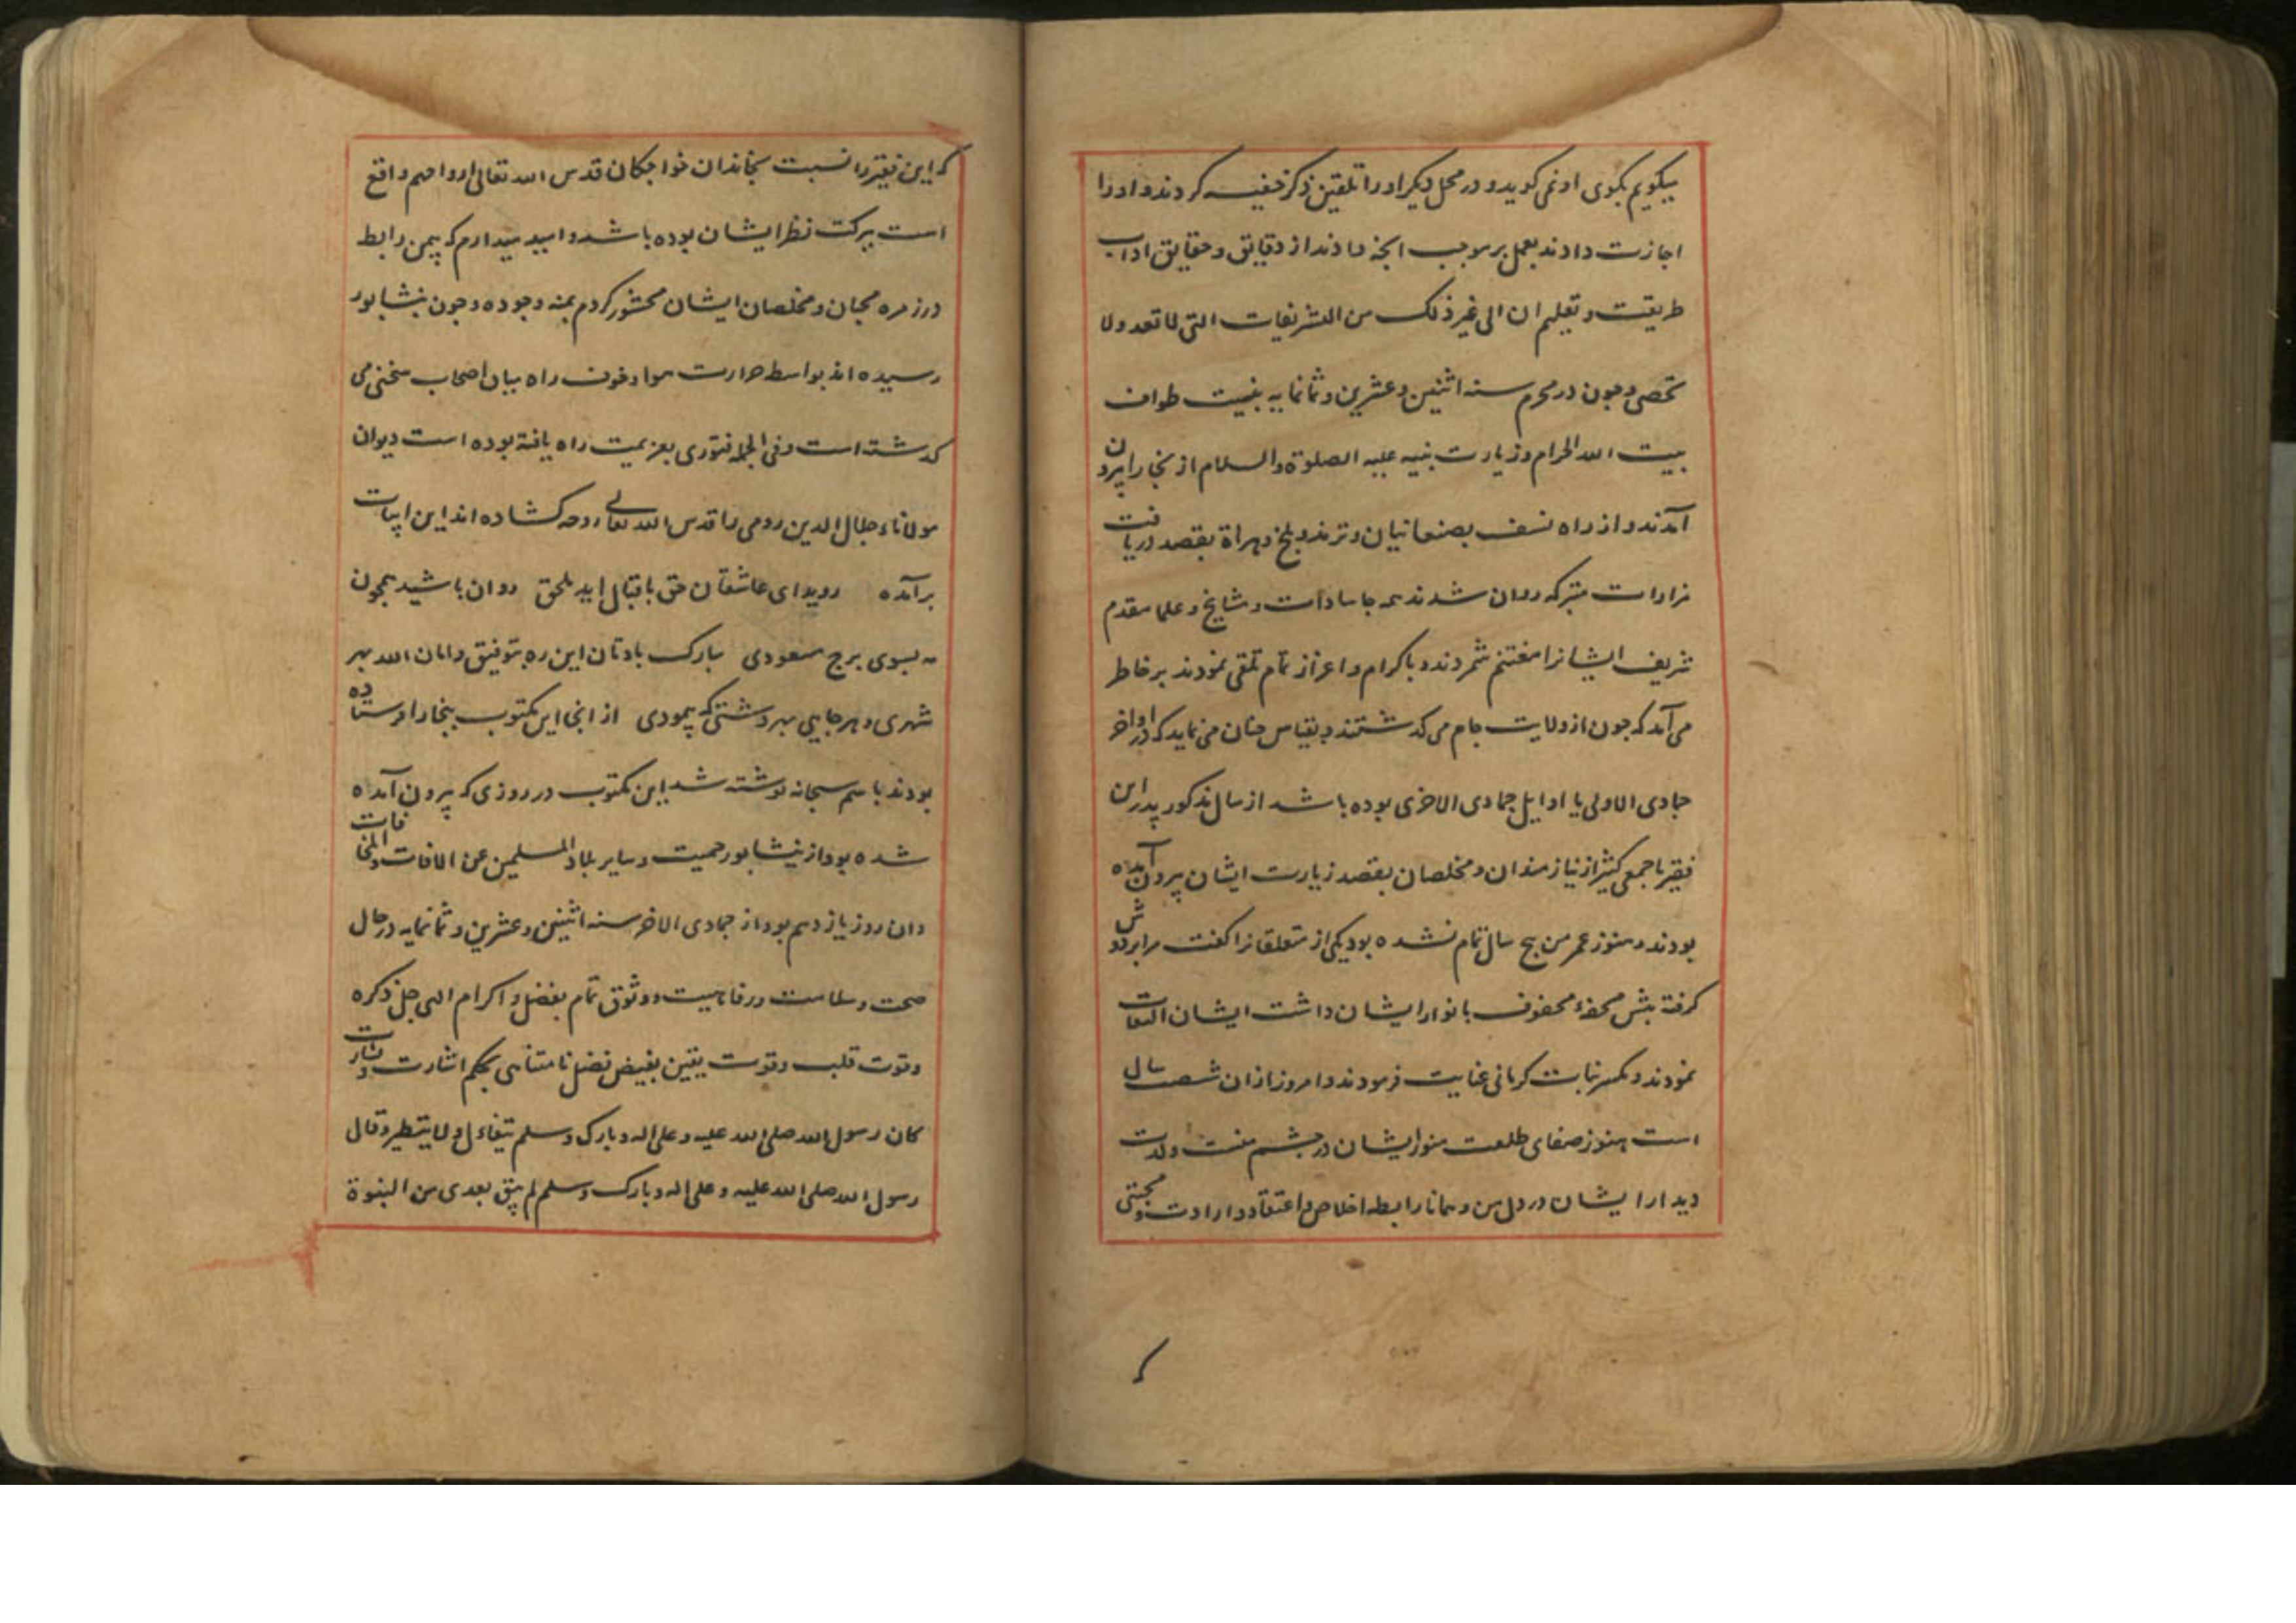 میکویم بکوی او نمی کوید و در محل دیکر او را تلقین ذکر خفیه کردند و او را
اجازت دادند بعمل بر موجب انجه دادند از دقایق و حقایق اداب
طریقت و تعلیم ان الی غیر ذلک من التشریفات التی لا تعد ولا
تحصی و جون در محرم سنه اثنین و عشرین و ثمانمایه بنیت طواف
بیت الله الحرام و زیارت نبیه علیه الصلوة والسلام از بخارا بیرون
آمدند و از راه نسف بصنعانیان و ترمذ و بلخ و هراة بقصد دریافت
مزارات متبرکه روان شدند همه جا سادات و مشایخ و علما مقدم
شریف ایشانرا مغتنم شمردند و باکرام و اعزاز تمام تلقی نمودند بر خاطر
می آمد که جون از ولایت جام می کذشتند و بقیاس جنان می نماید که در اواخر
جمادی الاولی یا اوایل جمادی الاخری بوده باشد از سال مذکور پدر این
فقیر با جمعی کثیر از نیازمندان و مخلصان بقصد زیارت ایشان بیرون آمده
بودند و هنوز عمر من پنج سال تمام نشده بود یکی از متعلقانرا کفت مرا بر دوش
کرفته پیش محفهٔ محفوف بانوار ایشان داشت ایشان التفات
نمودند و یکسر نبات کرمانی عنایت فرمودند و امروز ازان شصت سال
است هنوز صفای طلعت منور ایشان در چشم منست و لذت
دیدار ایشان در دل من و همانا رابطه اخلاص و اعتقاد و ارادت و محبتی
که این فقیر را نسبت بخاندان خواجکان قدس الله تعالی ارواحهم واقع
است ببرکت نظر ایشان بوده باشد و امید میدارم که بیمن رابط
در زمره محبان و مخلصان ایشان محشور کردم بمنه وجوده و جون بنشابور
رسیده اند بواسطه حرارت هوا و خوف راه میان اصحاب سخنی می
کذشته است و فی الجمله فتوری بعزیمت راه یافته بوده است دیوان
مولاناء جلال الدین رومی را قدس الله تعالی روحه کشاده اند این ابیات
برآمده روید ای عاشقان حق باقبال ابد ملحق روان باشید همجون
مه بسوی برج مسعودی مبارک بادتان این ره بتوفیق و امان الله بهر
شهری و هر جایی بهر دشتی که پیمودی از انجا این مکتوب ببخارا فرستاده
بودند باسم سبحانه نوشته شد این مکتوب در روزی که بیرون آمده
شده بود از نیشابور حمیت و سایر بلاد المسلمین عن الافات والمخافات
و ان روز یازدهم بود از جمادی الاخر سنه اثنین و عشرین و ثمانمایه در حال
صحت و سلامت و رفاهیت و وثوق تمام بفضل و اکرام الهی جل ذکره
وقوت قلب وقوت یقین بفیض فضل نامتناهی بحکم اشارت و بشارت
کان رسول الله صلی الله علیه و علی اله و بارک و سلم یتفاءل ولا یتطیر و قال
رسول الله صلی الله علیه و علی اله و بارک و سلم لم یبق بعدی من النبوة